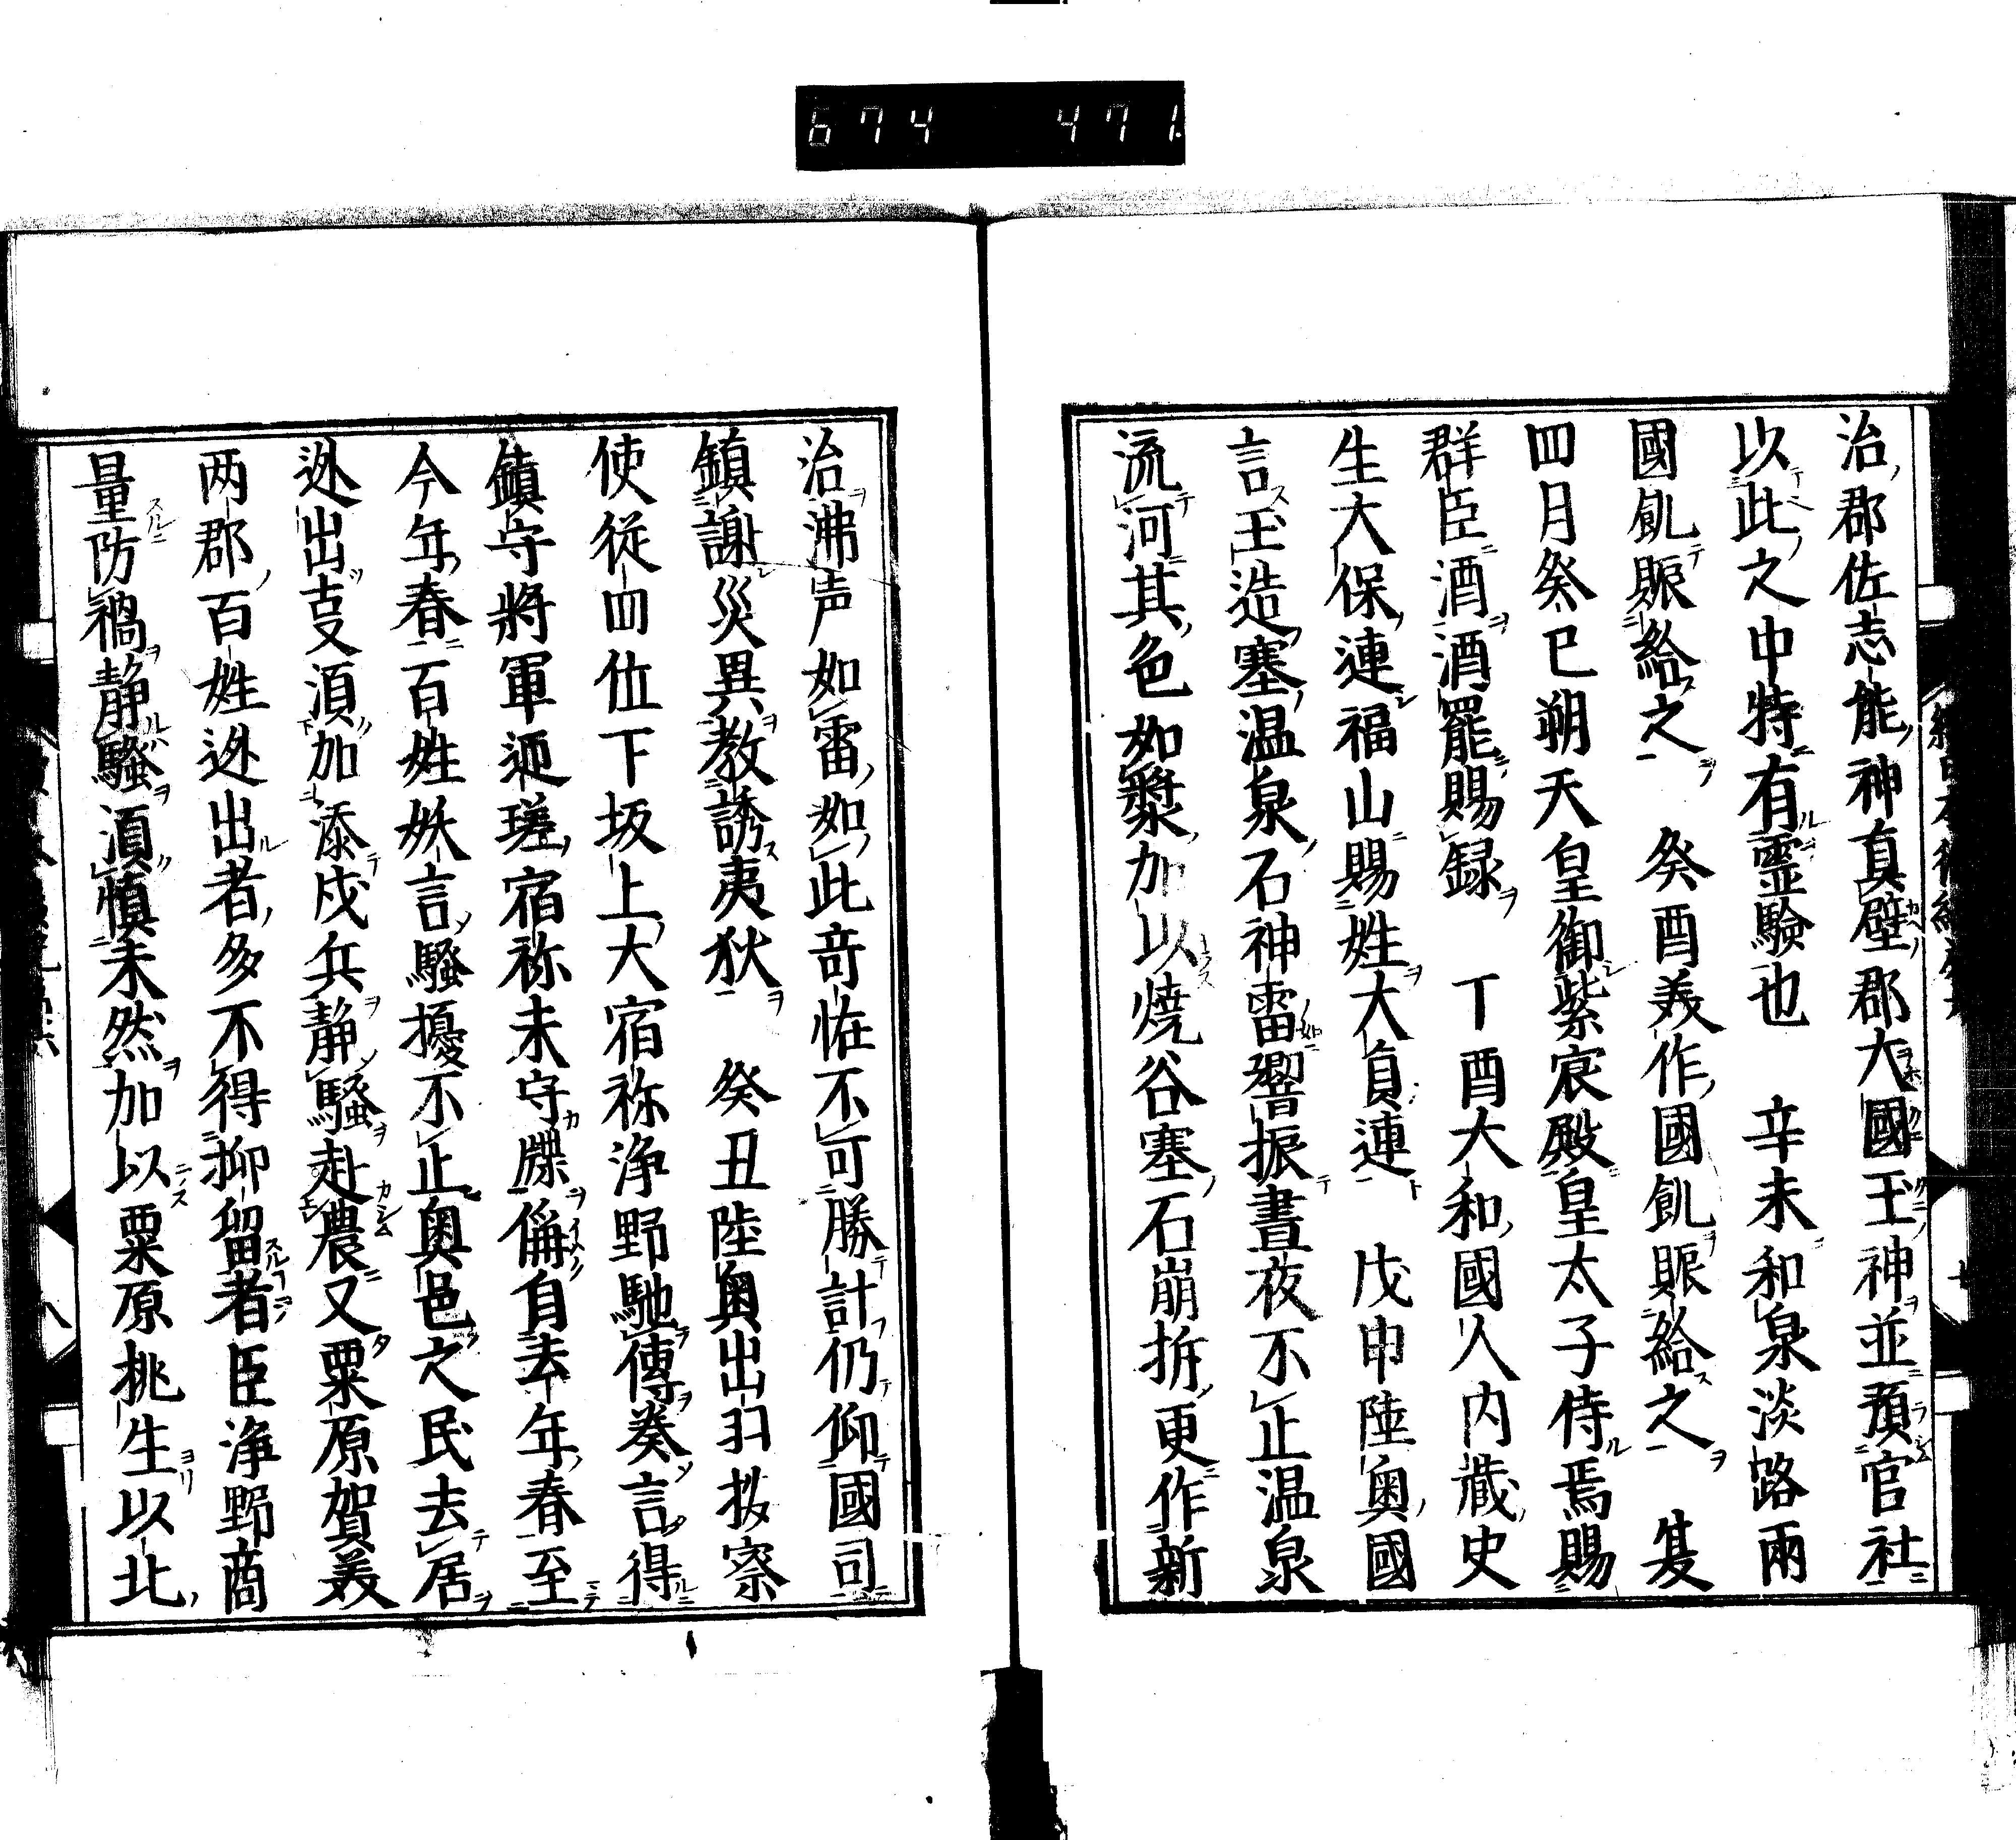 674 471
治郡佐志能神真壁郡大國玉神並預官社
以此之中特有霊驗也 辛未和泉淡路兩
國飢賑給之 癸酉美作國飢賑給之 夏
四月癸巳朔天皇御紫宸殿皇太子侍焉賜
群臣酒酒罷賜録 丁酉大和國人内蔵史
生大保連福山賜姓大貞連 戊申陸奥國
言玉造塞温泉石神雷響振晝夜不止温泉
流河其色如漿加以焼谷塞石崩拆更作新
治沸声如雷如此竒恠不可勝計仍仰國司
鎮謝災異教誘夷狄 癸丑陸奥出羽按察
使従四位下坂上大宿祢浄野馳傳奏言得
鎮守將軍匝瑳宿祢末守牒偁自去年春至
今年春百姓妖言騒擾不止奥邑之民去居
迯出事湏加添戍兵静騒赴農又粟原賀美
两郡百姓迯出者多不得抑留者臣浄野商
量防禍静騒湏慎未然加以粟原桃生以北